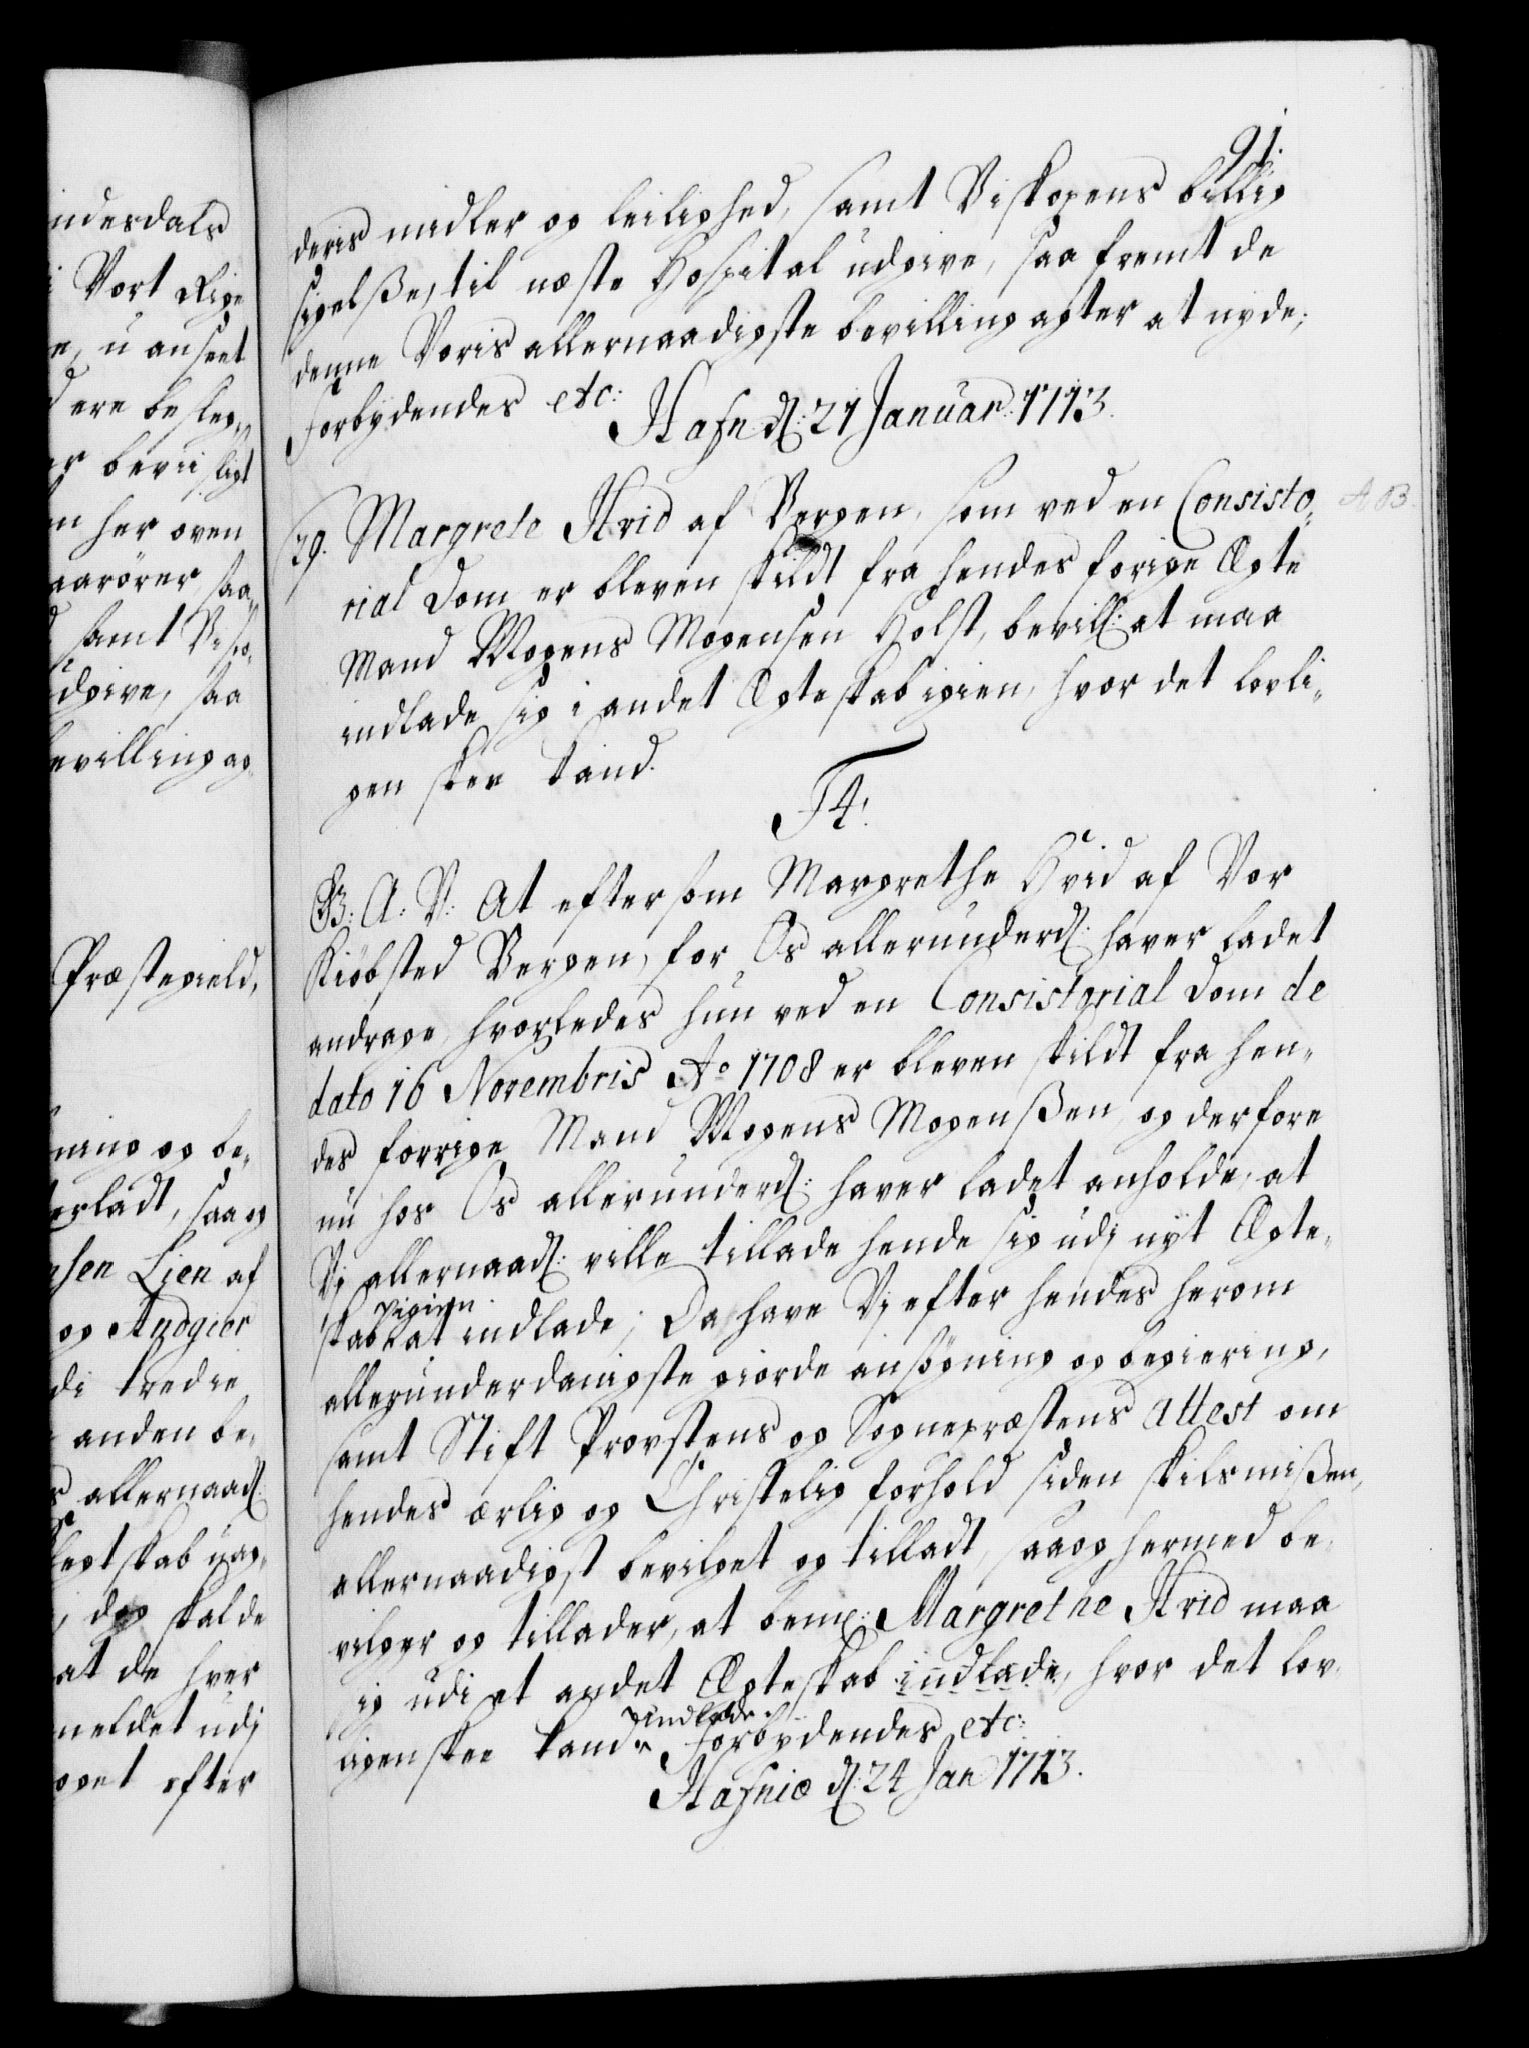 indesdals
i Vort Rige
e, u anseet
d ere besleg„
er beviisligt
en her oven
aarörer, saa„
d samt Bisco„
dgive, saa
bevilling ag„
Præstegield,
ning og be„
terladt, saa og
nsen Lien af
og Andgier
di tredie
anden be„
s allernaad:
legtskab uag„
, dog skal de
at de hver
meldet udj
oget efter
91.
deris midler og leilighed, samt Biskopens billig
sigelße, til neste Hospital udgive, saa fremt de
denne Voris allernaadigste bevilling agter at nyde;
Forbydendes etc:
Hafn d: 21 Januar: 1713.
29. Margrete Hvid af Bergen, som ved en Consisto„
A B.
rial Dom er bleven skildt fra hendes forige Ægte
Mand Mogens Mogensen Holst, bevill: at maa
indlade sig i andet Ægteskab igien, hvor det lovli„
gen skee kand.
F4!
G: A: V: At eftersom Margrethe Hvid af Vor
Kiöbsted Bergen, for Os allerunderd: haver ladet
andrage, hvorledes hun ved en Consistorial Dom de
dato 16 Novembris Ao 1708 er bleven skildt fra hen„
des forrige Mand Mogens Mogenßen og derfore
nu hos Os allerunderd: haver ladet anholde, at
Vj allernaad: ville tillade hende sig udj nyt Ægte„
igien
skab at indlade; Da have Vj efter hendes herom
allerunderdanigste giorde ansögning og begiering,
samt Stift Provstens og Sognepræstens attest om
hendes ærlig og Christelig forhold siden skilsmißen,
allernaadigst bevilget og tilladt, saa og hermed be„
vilger og tillader, at bem: Margrethe Hvid maa
sig udi et andet Ægteskab indlade, hvor det lov„
indlade
ligen skee kand. Forbydendes etc:
Hafniæ d: 24 Jan 1713.